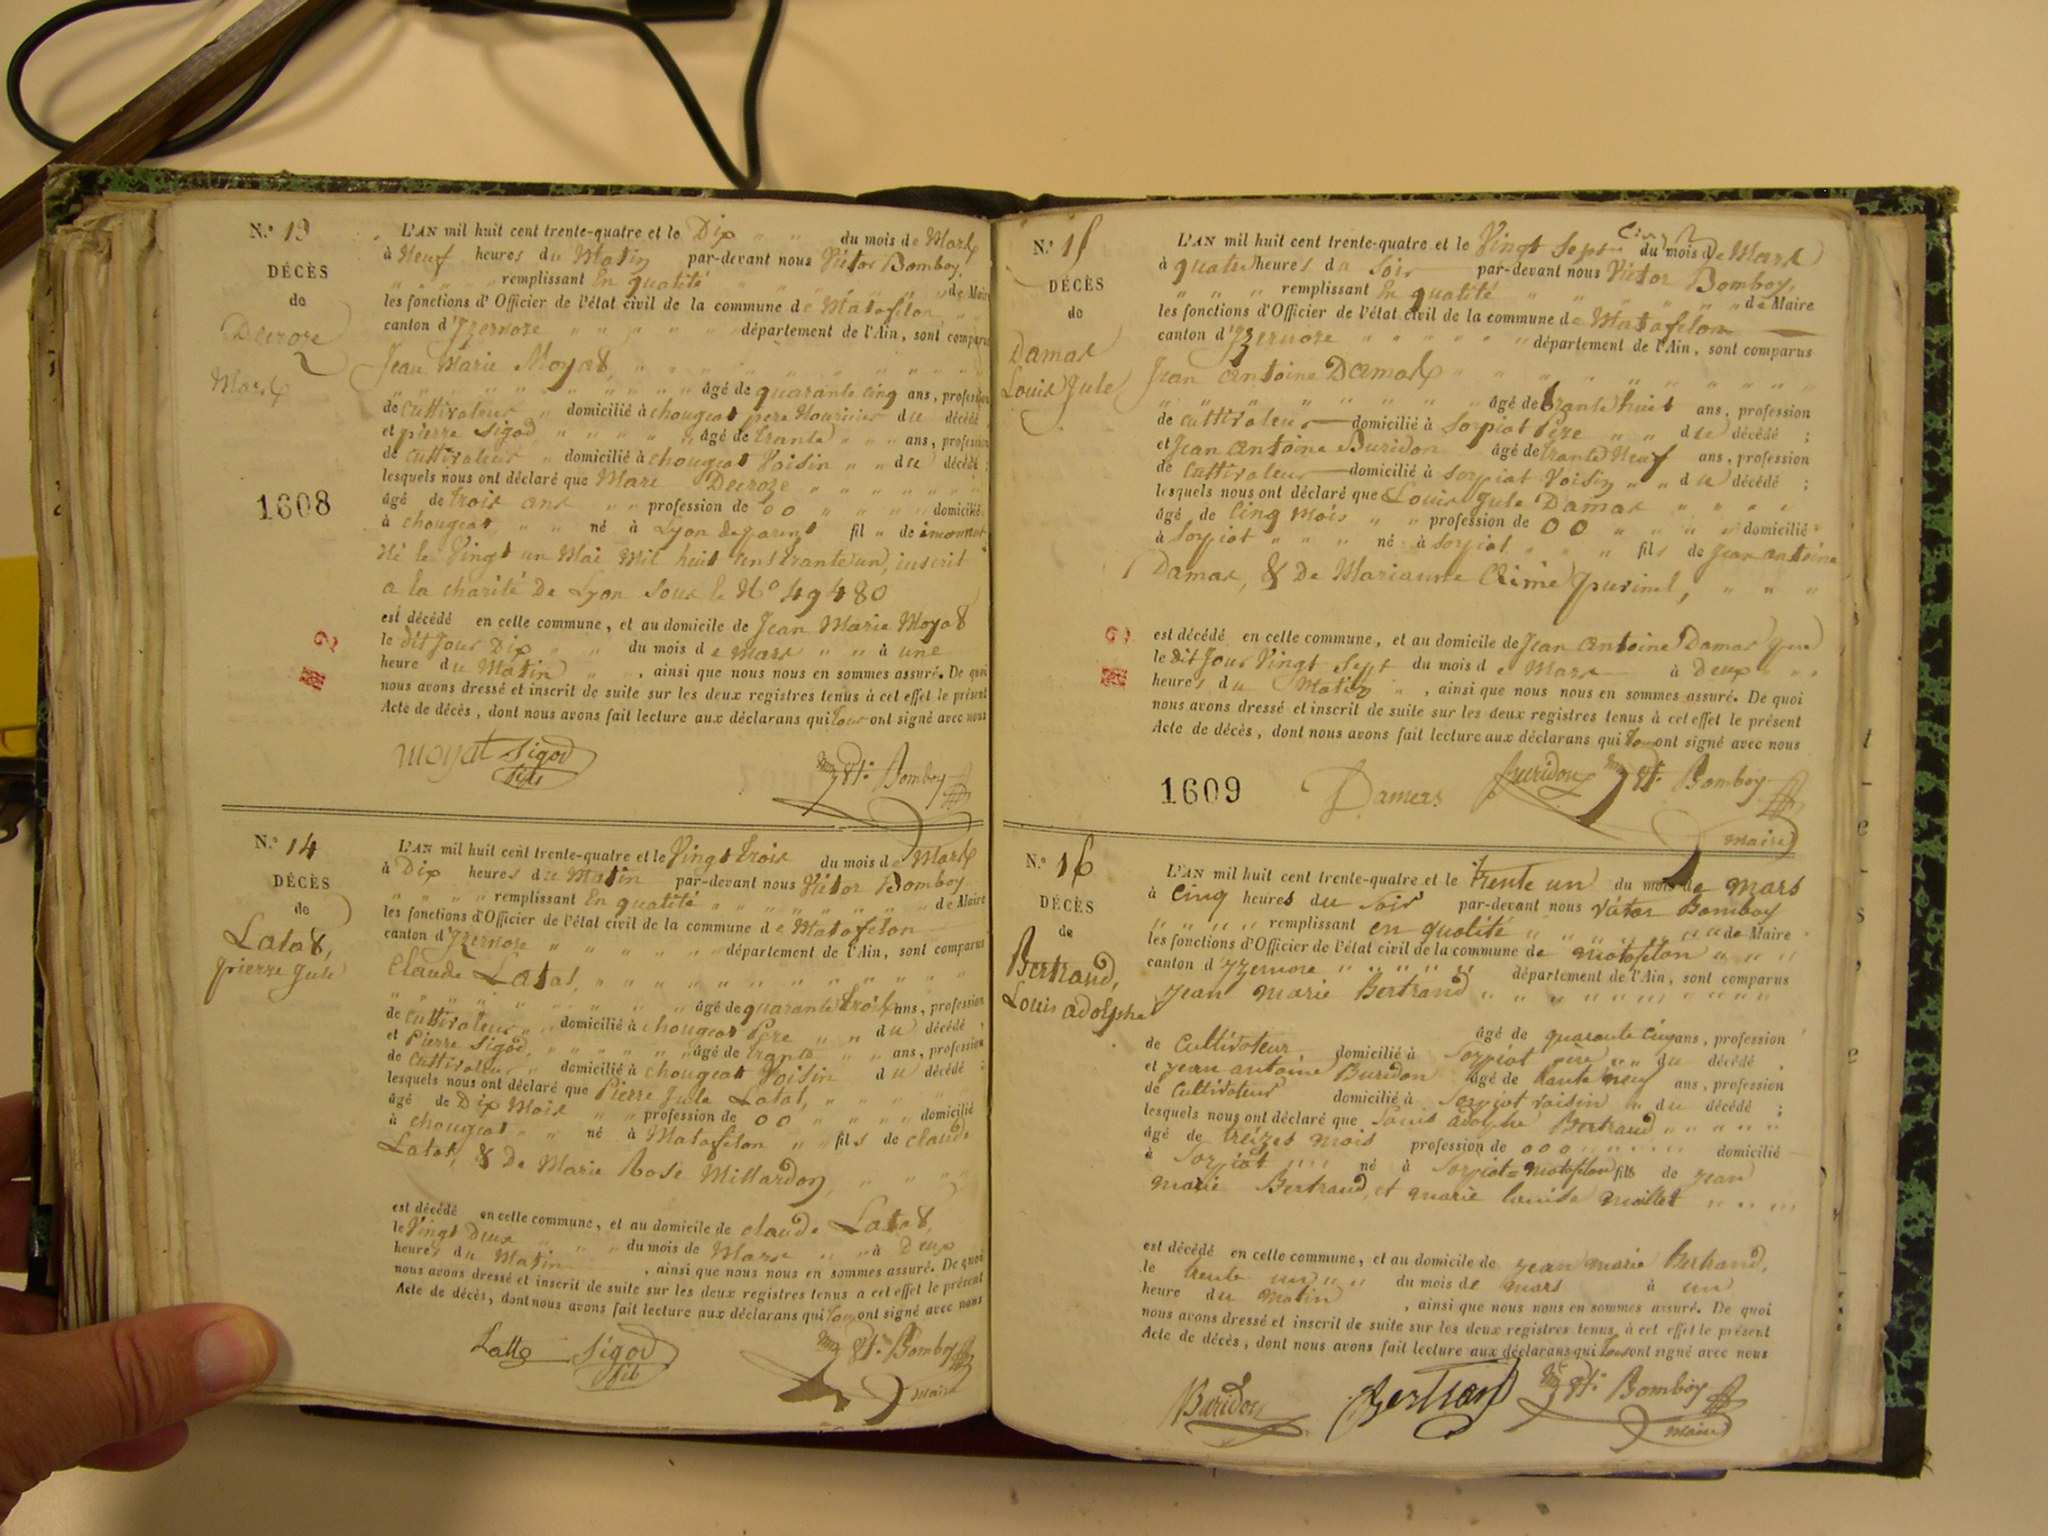 N.º 13
DÉCÈS
de
Decroze
Marc
1608
L'AN mil huit cent trente-quatre et le Dix " " du mois de Mars
à Neuf heures du Matin par-devant nous Victor Bomboy,
" " " " remplissant En qualité " " " " de Maire
les fonctions d'Officier de l'état civil de la commune de Matafelon " "
canton d'Yzernore " " " " " " département de l'Ain, sont comparus
Jean Marie Moyat, " " " " " " " "
" " " " " " " " âgé de quarante cinq ans, profession
de cultivateur " domicilié à chougeat pere Nouricier du décédé
et pierre Sigod " " " " " âgé de trante " " " ans, profession
de cultivateur " domicilié à chougeat Voisin " " du décédé ;
lesquels nous ont déclaré que Marc Decroze " " " " " "
âgé de trois ans " " profession de 00 " " " " domicilié
à chougeat, " " né à Lyon de parent fil " de inconnut
Né le Vingt un Mai Mil huit cens trante un, inscrit
a la charité De Lyon Sous le Nº 49480
est décédé en celle commune, et au domicile de Jean Marie Moyat
le dit Jour Dix " " du mois de mars " " à une
heure du Matin " " , ainsi que nous nous en sommes assuré. De quoi
nous avons dressé et inscrit de suite sur les deux registres tenus à cet effet le présent
Acte de décès, dont nous avons fait lecture aux déclarans qui tous ont signé avec nous
moyat Sigod
fils
Bomboy
N.º 14
DÉCÈS
de
Latat,
pierre Jule
L'AN mil huit cent trente-quatre et le Vingt trois du mois de Mars
à Dix heures du Matin par-devant nous Victor Bomboy
" " " " remplissant En qualité " " " " " " de Maire
les fonctions d'Officier de l'état civil de la commune de Matafelon
canton d'Yzernore " " " " " " département de l'Ain, sont comparus
Claude Latat, " " " " " " " " " "
" " " " " " " " âgé de quarante trois ans, profession
de cultivateur " " domicilié à chougeat Père " " du décédé ,
et Pierre Sigod, " " " " " " âgé de trante " " ans, profession
de cultivateur " domicilié à chougeat Voisin du décédé ;
lesquels nous ont déclaré que Pierre Jule Latat, " " " "
âgé de Dix Mois " " profession de 00 " " " " domicilié
à chougeat " " né à Matafelon " " fils de claude
Latat, & De Marie Rose Millardon, " " " "
est décédé en celle commune, et au domicile de claude Latat,
le Vingt Deux " " " du mois de Mars " " à Deux
heures du Matin , ainsi que nous nous en sommes assuré. De quoi
nous avons dressé et inscrit de suite sur les deux registres tenus à cet effet le présent
Acte de décès, dont nous avons fait lecture aux déclarans qui tous ont signé avec nous
Latte Sigod
fils
Bomboy
maire
N.º 15
DÉCÈS
de
Damas
Louis Jule
L'AN mil huit cent trente-quatre et le Vingt Sept du mois de Mars
à quatre heures du Soir par-devant nous Victor Bomboy,
" " " remplissant En qualité " " " " " de Maire
les fonctions d'Officier de l'état civil de la commune de Matafelon
canton d'Yzernore " " " " " " département de l'Ain, sont comparus
Jean Antoine Damas " " " " " " " " " "
" " " " " " " " âgé de trante huit ans, profession
de cultivateur domicilié à Sorpiat Père " " du décédé ;
et Jean Antoine Buridon âgé de trante Neuf ans, profession
de cultivateur domicilié à Sorpiat Voisin " " du décédé ;
lesquels nous ont déclaré que Louis Jule Damas " " " "
âgé de Cinq Mois " " profession de 00 " " " " domicilié
à Sorpiat " " " né à Sorpiat " " " fils de Jean Antoine
Damas, & De Marianne " " "
est décédé en celle commune, et au domicile de Jean Antoine Damas
le dit Jour Vingt Sept du mois de Mars à Deux " "
heures du Matin " , ainsi que nous nous en sommes assuré. De quoi
nous avons dressé et inscrit de suite sur les deux registres tenus à cet effet le présent
Acte de décès, dont nous avons fait lecture aux déclarans qui tous ont signé avec nous
1609 Damas Buridon Bomboy
maire
N.º 16
DÉCÈS
de
Bertrand,
Louis adolphe
L'AN mil huit cent trente-quatre et le trente un du mois de mars
à Cinq heures du Soir par-devant nous victor Bomboy
" " " " " remplissant en qualité " " " " " " de Maire
les fonctions d'Officier de l'état civil de la commune de matafelon " " "
canton d'yzernore " " " " " " département de l'Ain, sont comparus
jean marie Bertrand " " " " " " " " " "
âgé de quarante cinq ans, profession
de Cultivateur, domicilié à Sorpiat père " " du décédé ,
et jean antoine Buridon âgé de trante neuf ans, profession
de Cultivateur domicilié à Sorpiat voisin " du décédé ;
lesquels nous ont déclaré que Louis adolphe Bertrand " " " " "
âgé de treizes mois profession de 000 " " " " domicilié
à Sorpiat " " " né à Sorpiat=matafelon fils de jean
marie Bertrand, et marie Louise maillet " " " "
est décédé en celle commune, et au domicile de jean marie Bertrand,
le trente un " " du mois de mars à un
heure du matin , ainsi que nous nous en sommes assuré. De quoi
nous avons dressé et inscrit de suite sur les deux registres tenus à cet effet le présent
Acte de décès, dont nous avons fait lecture aux déclarans qui tous ont signé avec nous
Buridon Bertrand Bomboy
maire